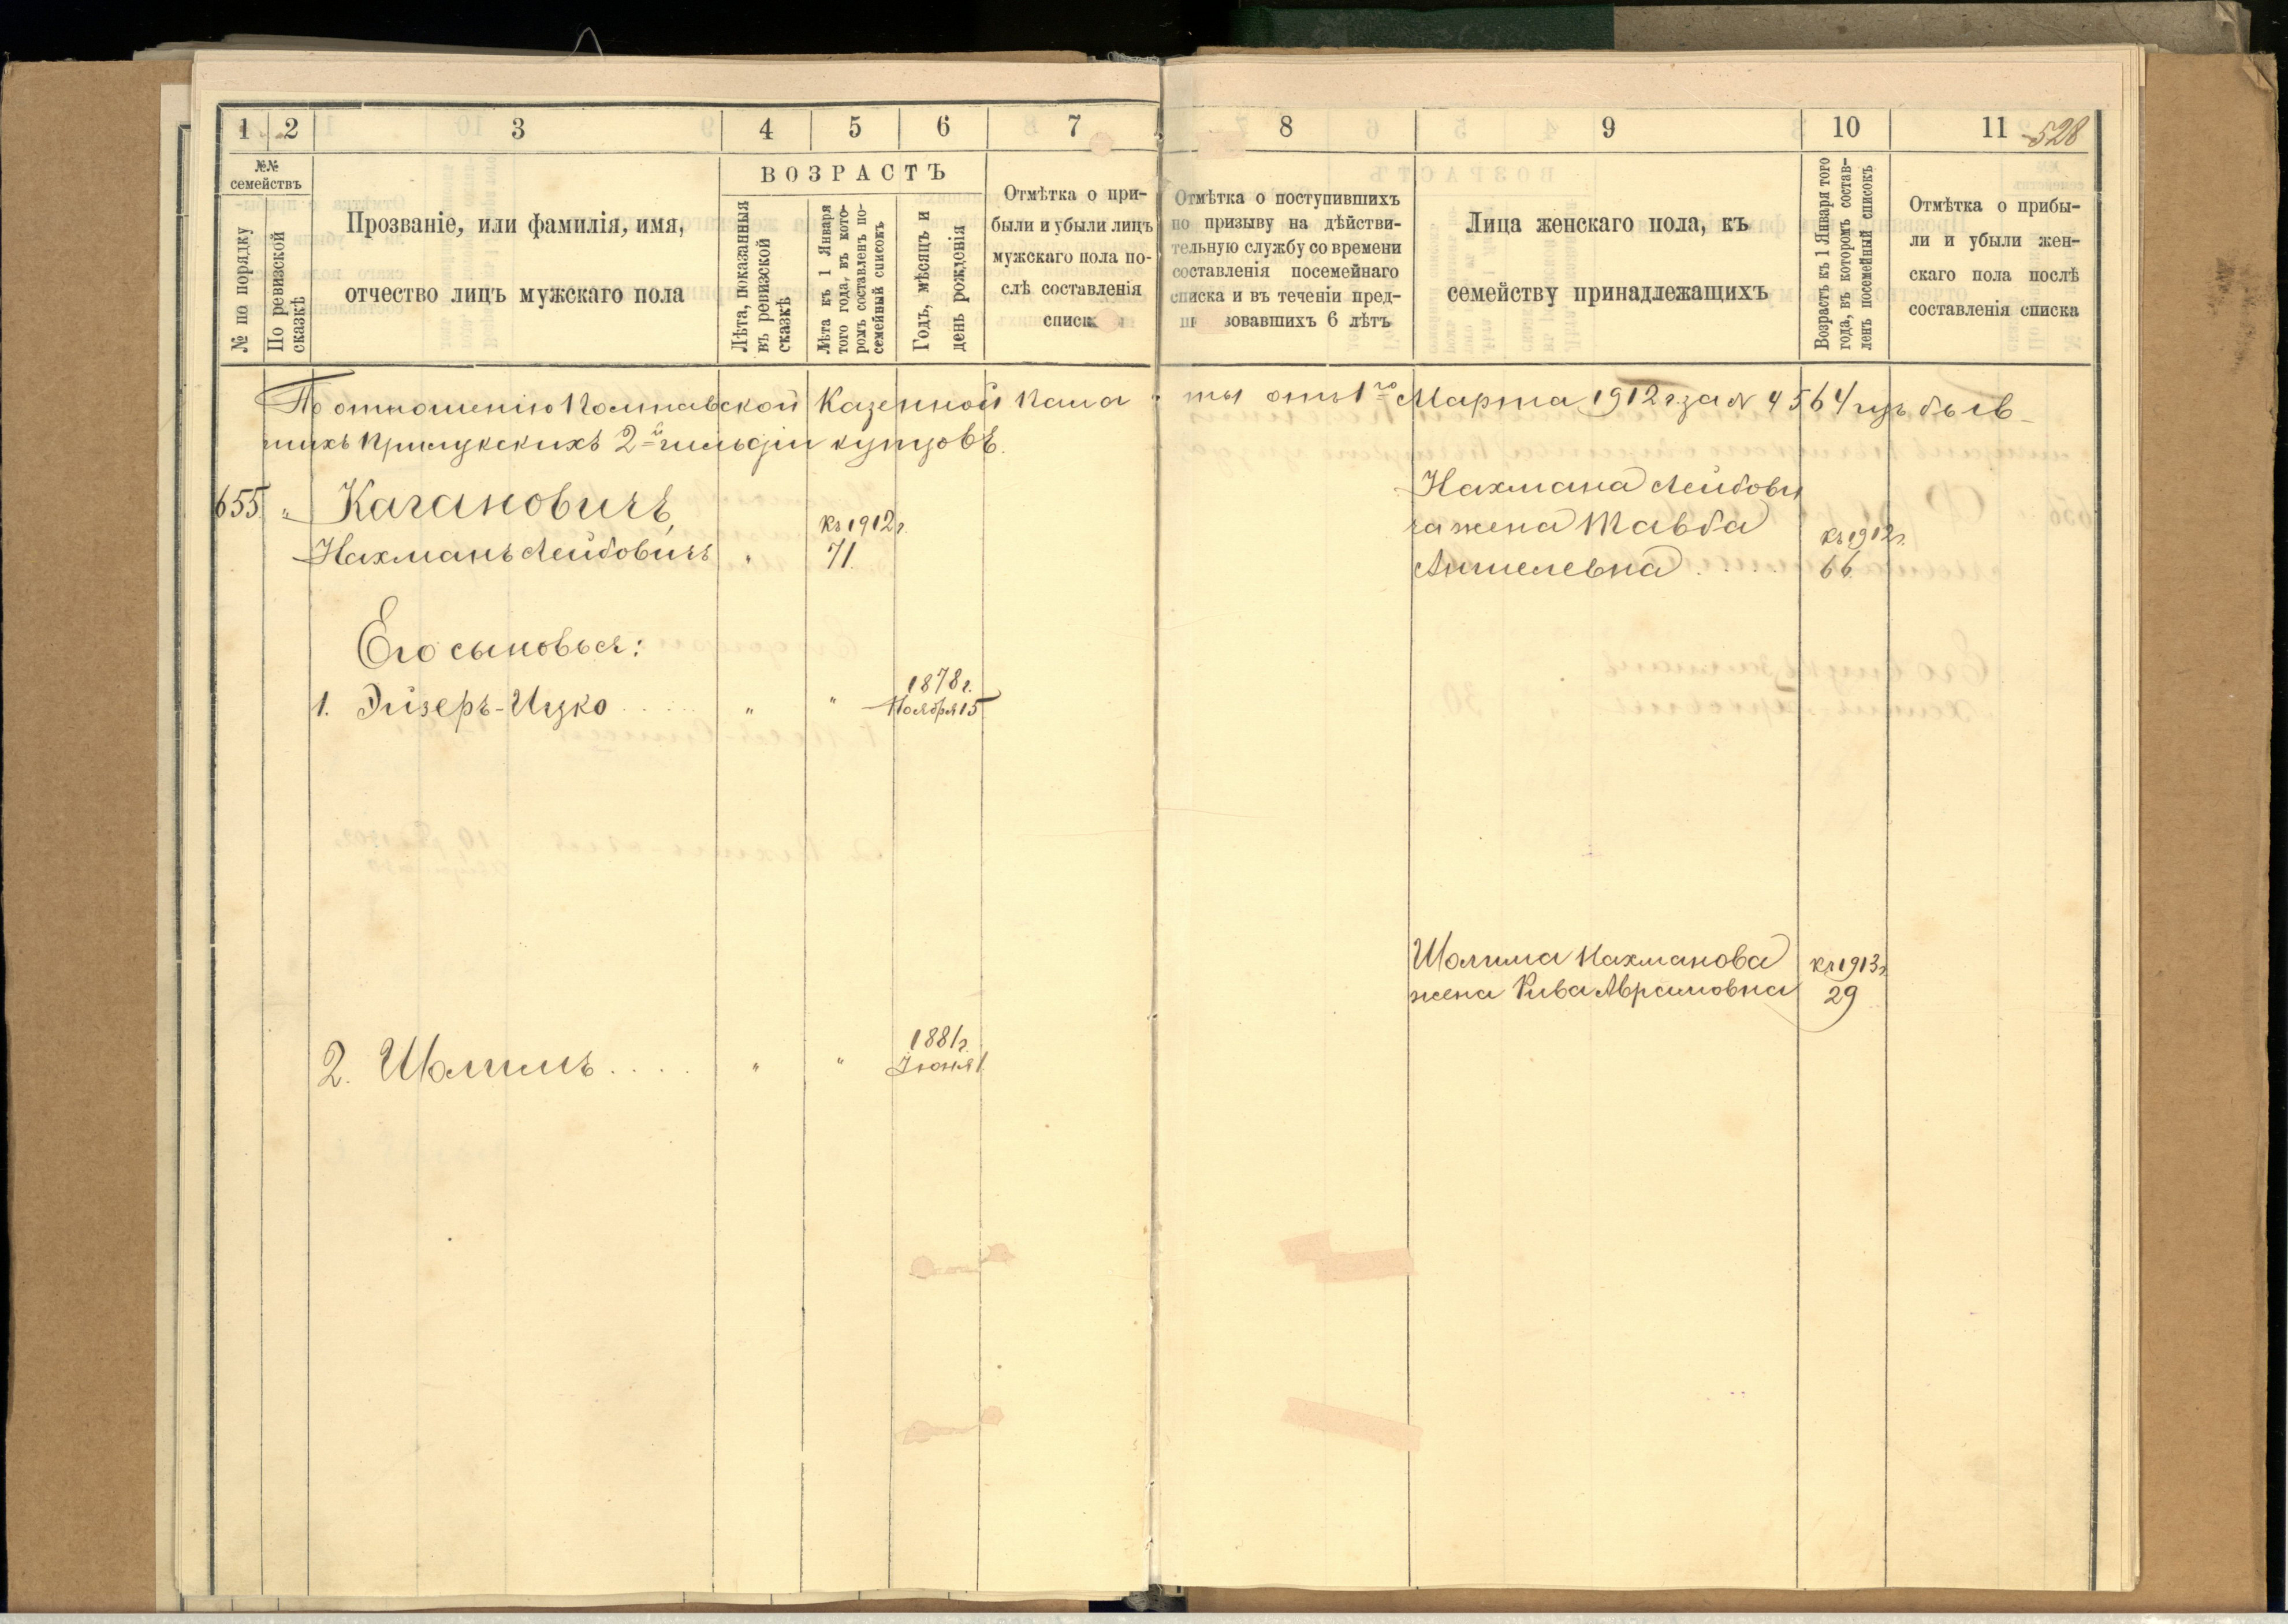 1 2 3 4 5 6 7 8 9 10 11 528
№№ семействъ
№ по порядку
По ревизской сказкѣ
Прозваніе, или фамилія, имя,
отчество лицъ мужскаго пола
ВОЗРАСТЪ
Лѣта, показанныя
въ ревизской
сказкѣ
Лѣта къ 1 Января
того года, въ кото-
ромъ составленъ по-
семейный списокъ
Годъ, мѣсяцъ и
день рожденія
Отмѣтка о при-
были и убыли лицъ
мужскаго пола по-
слѣ составленія
списка
Отмѣтка о поступившихъ
по призыву на дѣйстви-
тельную службу со времени
составленія посемейнаго
списка и въ теченіи пред-
шествовавшихъ 6 лѣтъ
Лица женскаго пола, къ
семейству принадлежащихъ
Возрастъ къ 1 Января того
года, въ которомъ состав-
ленъ посемейный списокъ
Отмѣтка о прибы-
ли и убыли жен-
скаго пола послѣ
составленія списка
По отношенію Полтавской Казенной Пала ты отъ 1го Марта 1912 г за № 4564 изъ быв-
шихъ Прилукскихъ 2й гильдіи купцовъ.
655. " Кагановичъ,
Нахманъ Лейбовичъ "
къ 1912 г.
71.
Нахмана Лейбови
ча жена Тавба
Аншелевна
къ 1912 г.
66.
Его сыновья:
1. Эйзеръ-Ицко " "
1878 г.
Ноября 15
Шолима Нахманова
жена Рива Абрамовна
къ 1913 г.
29
2. Шолимъ . . . . " "
1881 г.
Іюня 1